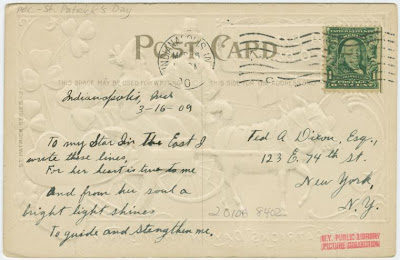 PC - St. Patrick's Day
POST CARD
INDIANAPOLIS, IND.
THIS SPACE MAY BE USED FOR
Indianapolis, Ind
3-16-09
To my Star In The East I
wrote these lines,
For her heart is true to me
And from her soul a
bright light shines
To guide and strengthen me.
Ted A. Dixon, Esq.,
123 E. 74th St.
New York,
N.Y.
N.Y. PUBLIC LIBRARY
PICTURE COLLECTION